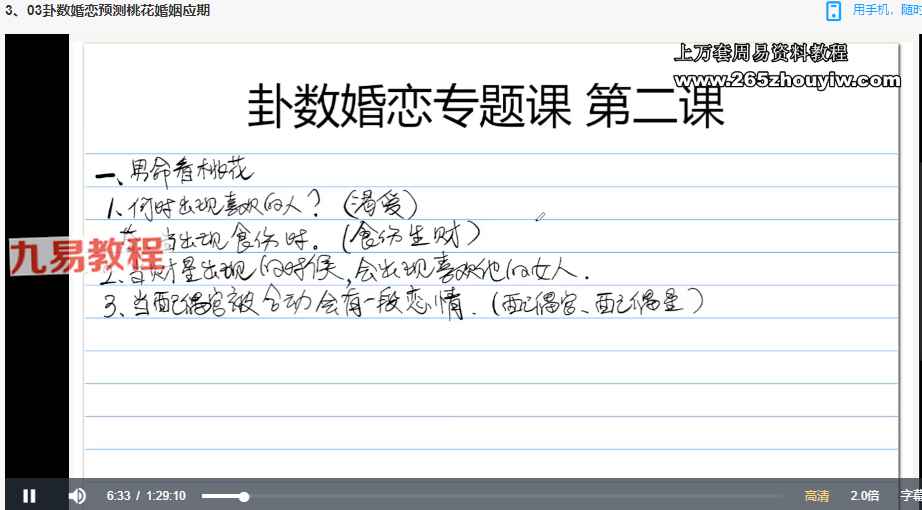 3、03卦数婚恋预测桃花婚姻应期
用手机，随时
上万套周易资料教程
www.265zhouyiw.com
卦数婚恋专题课 第二课
一、男命看桃花
1、何时出现喜欢的人？（渴爱）
当出现食伤时.（食伤生财）
九易教程
2、当财星出现的时候，会出现喜欢他的女人.
3、当配偶宫被合动会有一段恋情.（配偶宫、配偶星）
6:33 / 1:29:10
高清
2.0倍
字幕